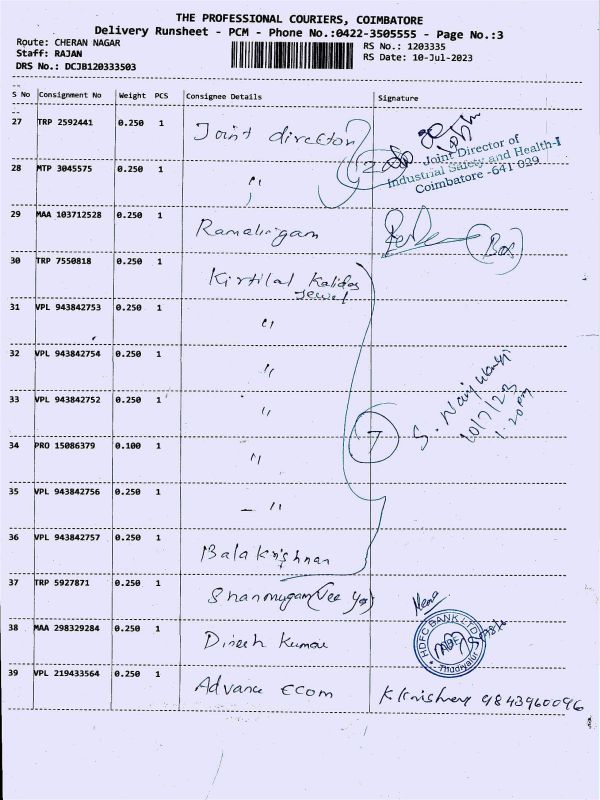 THE PROFESSIONAL COURIERS, COIMBATORE
Delivery Runsheet - PCM - Phone No.:0422-3505555 - Page No.:3
Route: CHERAN NAGAR
RS No.: 1203335
Staff: RAJAN
RS Date: 10-Jul-2023
DRS No.: DCJB120333503
S No Consignment No Weight PCS Consignee Details Signature
27 TRP 2592441 0.250 1 Joint director
Joint Director of
Industrial Safety and Health-I
Coimbatore -641 029
28 MTP 3045575 0.250 1 "
29 MAA 103712528 0.250 1 Ramalingam
30 TRP 7550818 0.250 1 Kirtilal Kalidas
Jewel
31 VPL 943842753 0.250 1 "
32 VPL 943842754 0.250 1 "
33 VPL 943842752 0.250 1 "
10/7/23
1.20 pm
34 PRO 15086379 0.100 1 "
7
35 VPL 943842756 0.250 1 - "
36 VPL 943842757 0.250 1 Balakrishnan
37 TRP 5927871 0.250 1 Shanmugam
38 MAA 298329284 0.250 1 Dinesh Kumar
HDFC BANK LTD
Thudiyalur
39 VPL 219433564 0.250 1 Advance Ecom 9843960096